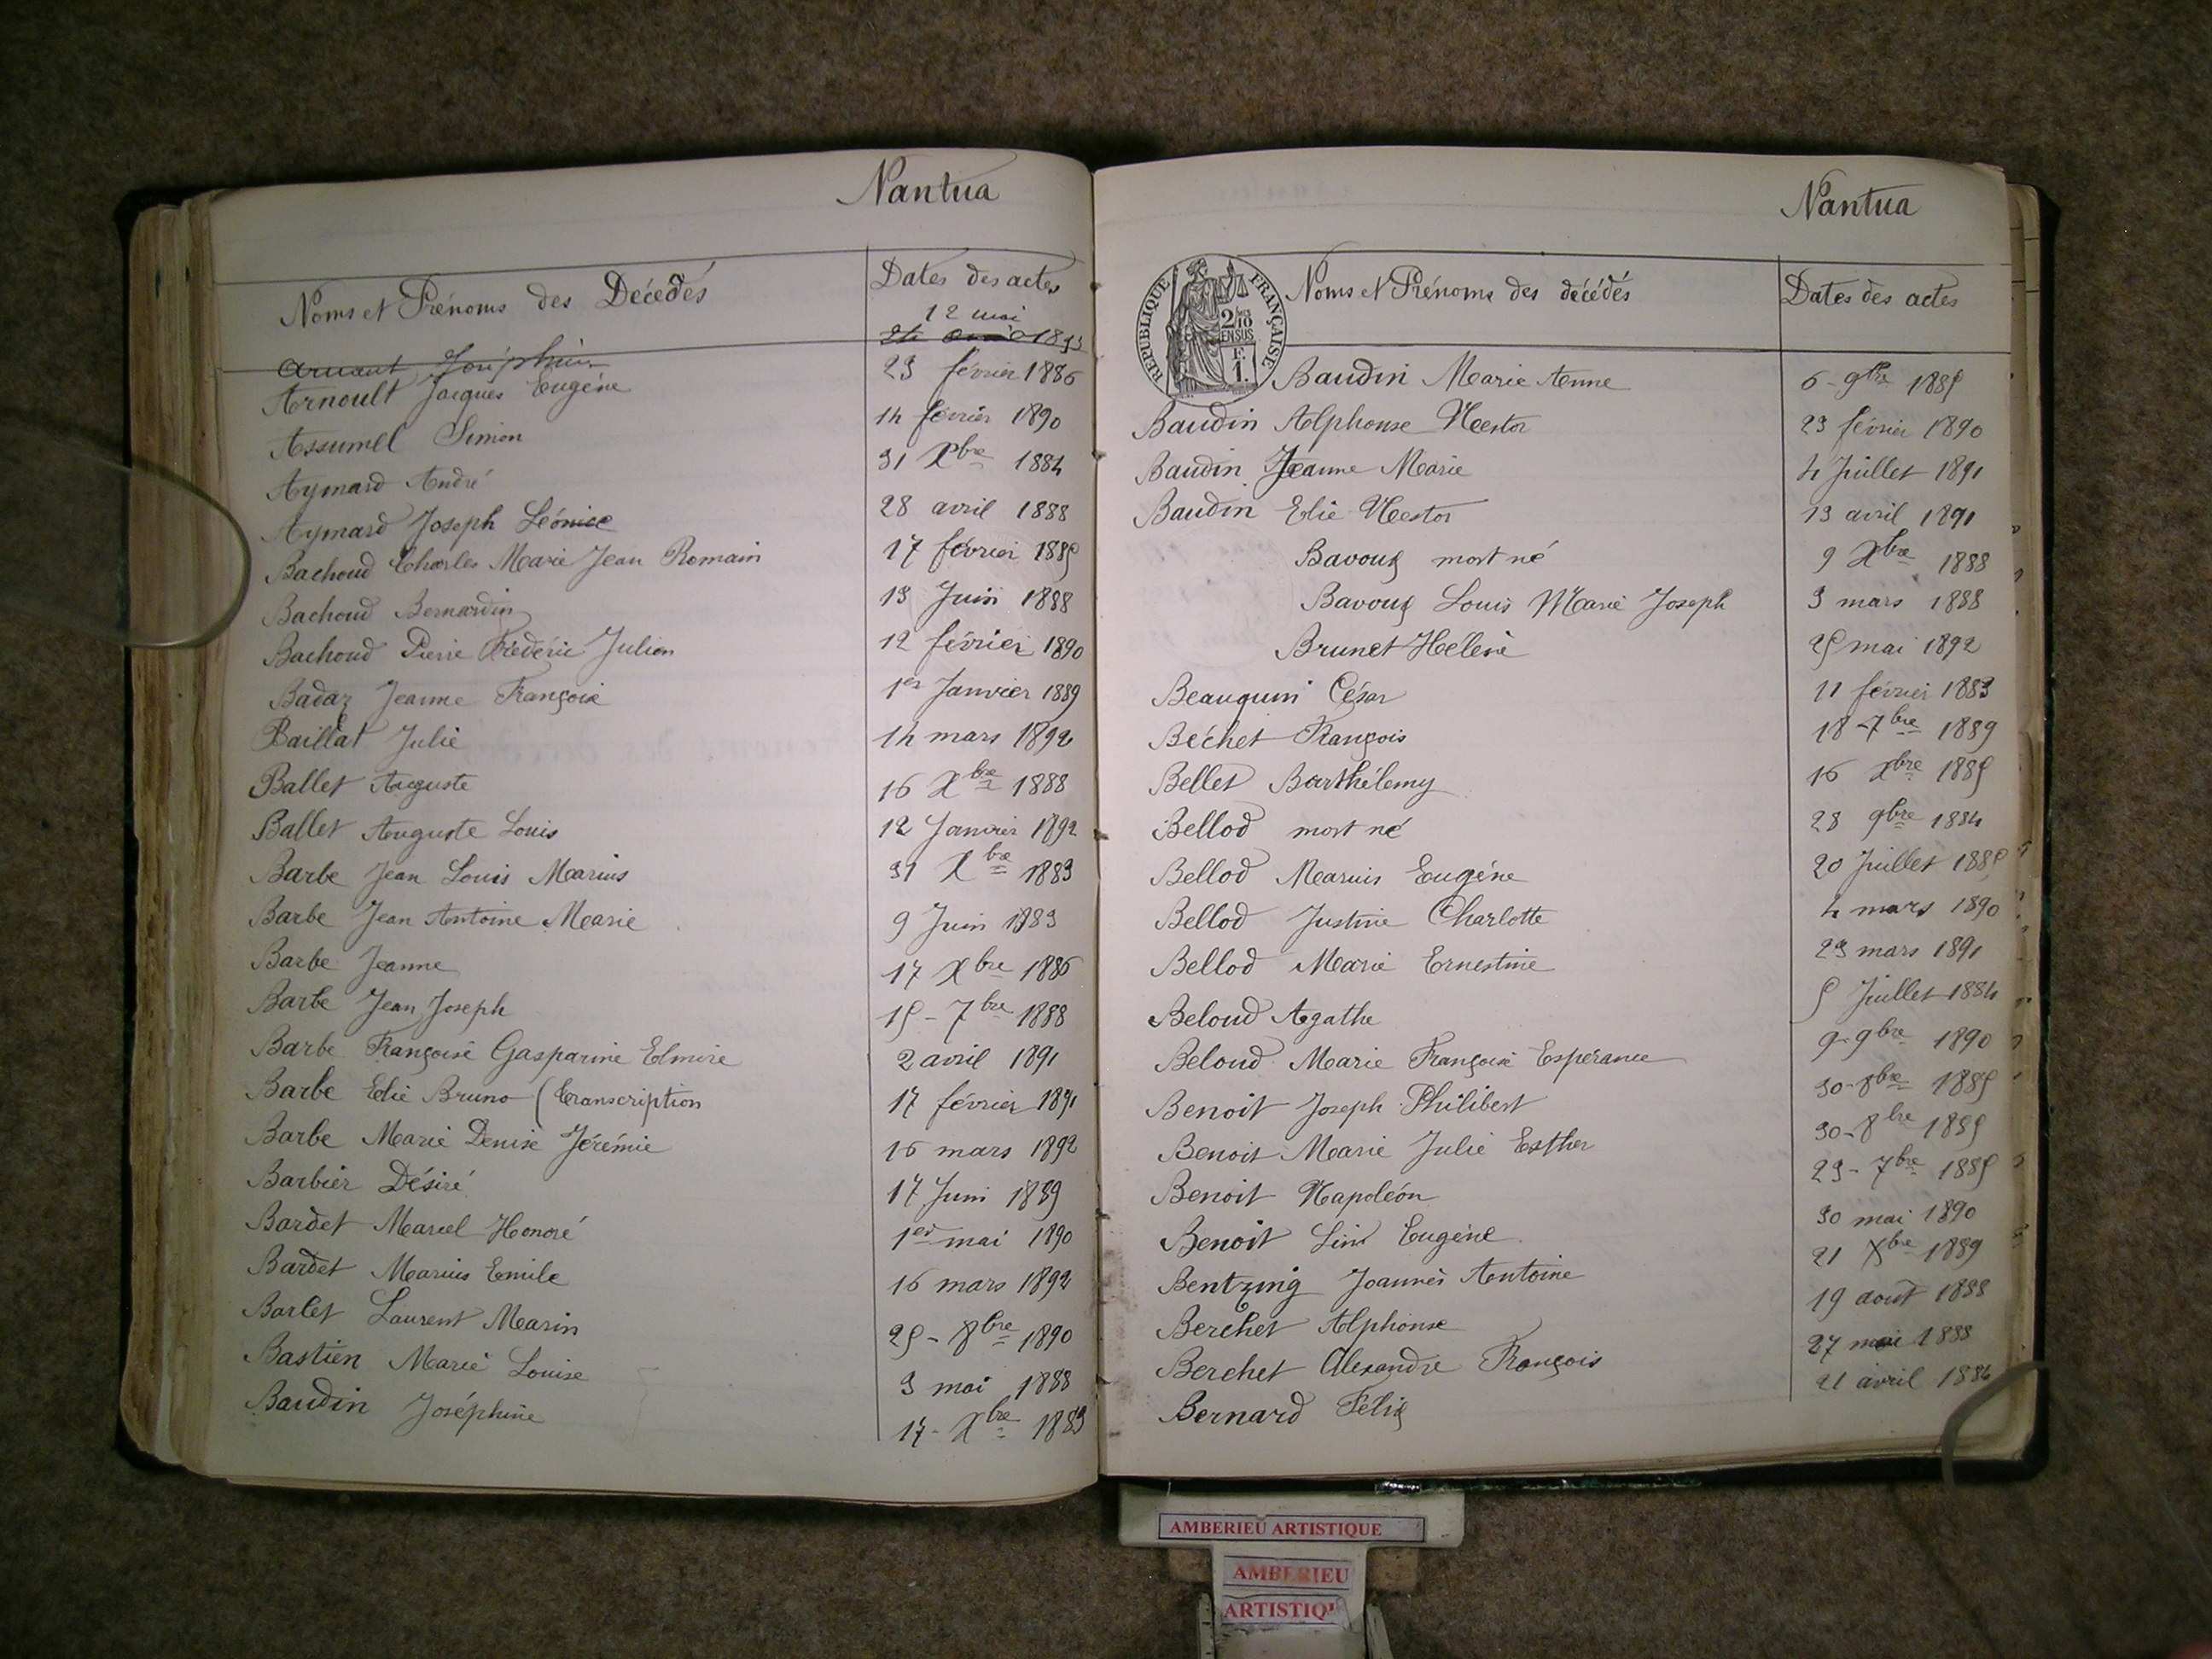 Nantua
Noms et Prénoms des Décédés Dates des actes
12 mai
Arnoult Jacques Eugène 23 février 1886
Assumel Simon 14 février 1890
Aymard André 31 Xbre 1884
Aymard Joseph Léonice 28 avril 1888
Bachoud Charles Marie Jean Romain 17 février 1885
Bachoud Bernardin 13 Juin 1888
Bachoud Pierre Frédéric Julien 12 février 1890
Badaz Jeanne Françoise 1er Janvier 1889
Baillat Julie 14 mars 1892
Ballet Auguste 16 Xbre 1888
Ballet Auguste Louis 12 Janvier 1892
Barbe Jean Louis Marius 31 Xbre 1883
Barbe Jean Antoine Marie 9 Juin 1883
Barbe Jeanne 17 Xbre 1886
Barbe Jean Joseph 15 - 7bre 1888
Barbe Françoise Gasparine Elmire 2 avril 1891
Barbe Elie Bruno (Transcription 17 février 1891
Barbe Marie Denise Jérémie 16 mars 1892
Barbier Désiré 17 Juin 1889
Bardet Marcel Honoré 1er mai 1890
Bardet Marius Emile 16 mars 1892
Barlet Laurent Marin 25 - 8bre 1890
Bastien Marie Louise 3 mai 1888
Baudin Joséphine 17 - Xbre 1883
Nantua
REPUBLIQUE FRANÇAISE
2/10
EN SUS
F.
1.
Noms et Prénoms des décédés Dates des actes
Baudin Marie Anne 6 - 9bre 1885
Baudin Alphonse Nestor 23 février 1890
Baudin Jeanne Marie 4 Juillet 1891
Baudin Elie Nestor 13 avril 1891
Bavoux mort né 9 Xbre 1888
Bavoux Louis Marie Joseph 3 mars 1888
Brunet Hélène 25 mai 1892
Beauquin César 11 février 1883
Béchet François 18 - 7bre 1889
Bellet Barthélemy 16 Xbre 1885
Bellod mort né 28 9bre 1884
Bellod Marius Eugène 20 Juillet 1885
Bellod Justine Charlotte 4 mars 1890
Bellod Marie Ernestine 23 mars 1891
Beloud Agathe 5 Juillet 1884
Beloud Marie Françoise Espérance 9 - 9bre 1890
Benoit Joseph Philibert 30 - 8bre 1885
Benoit Marie Julie Esther 30 - 8bre 1885
Benoit Napoléon 23 - 7bre 1885
Benoit Eugène 30 mai 1890
Bentzing Joannès Antoine 21 Xbre 1889
Berchet Alphonse 19 aout 1888
Berchet Alexandre François 27 mai 1888
Bernard Félix 21 avril 1884
AMBERIEU ARTISTIQUE
AMBERIEU
ARTISTIQU